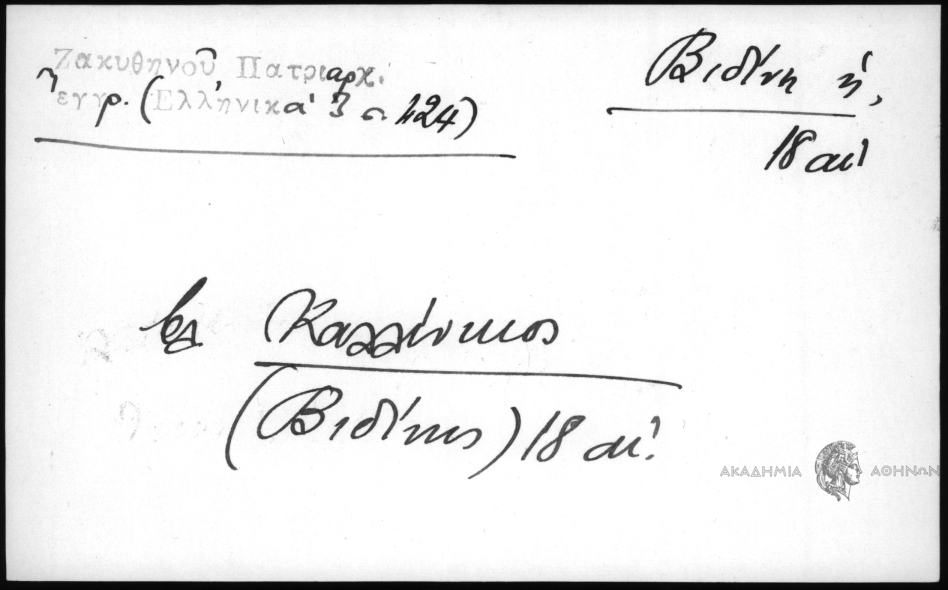 Ζακυθηνοῦ Πατριαρχ.
ἔγγρ. (Ἑλληνικά 3 σ. 424)
Βιδίνη ἡ,
18 αἰ
βλ Καλλίνικος
(Βιδίνης) 18 αἰ.
ΑΚΑΔΗΜΙΑ ΑΘΗΝΩΝ